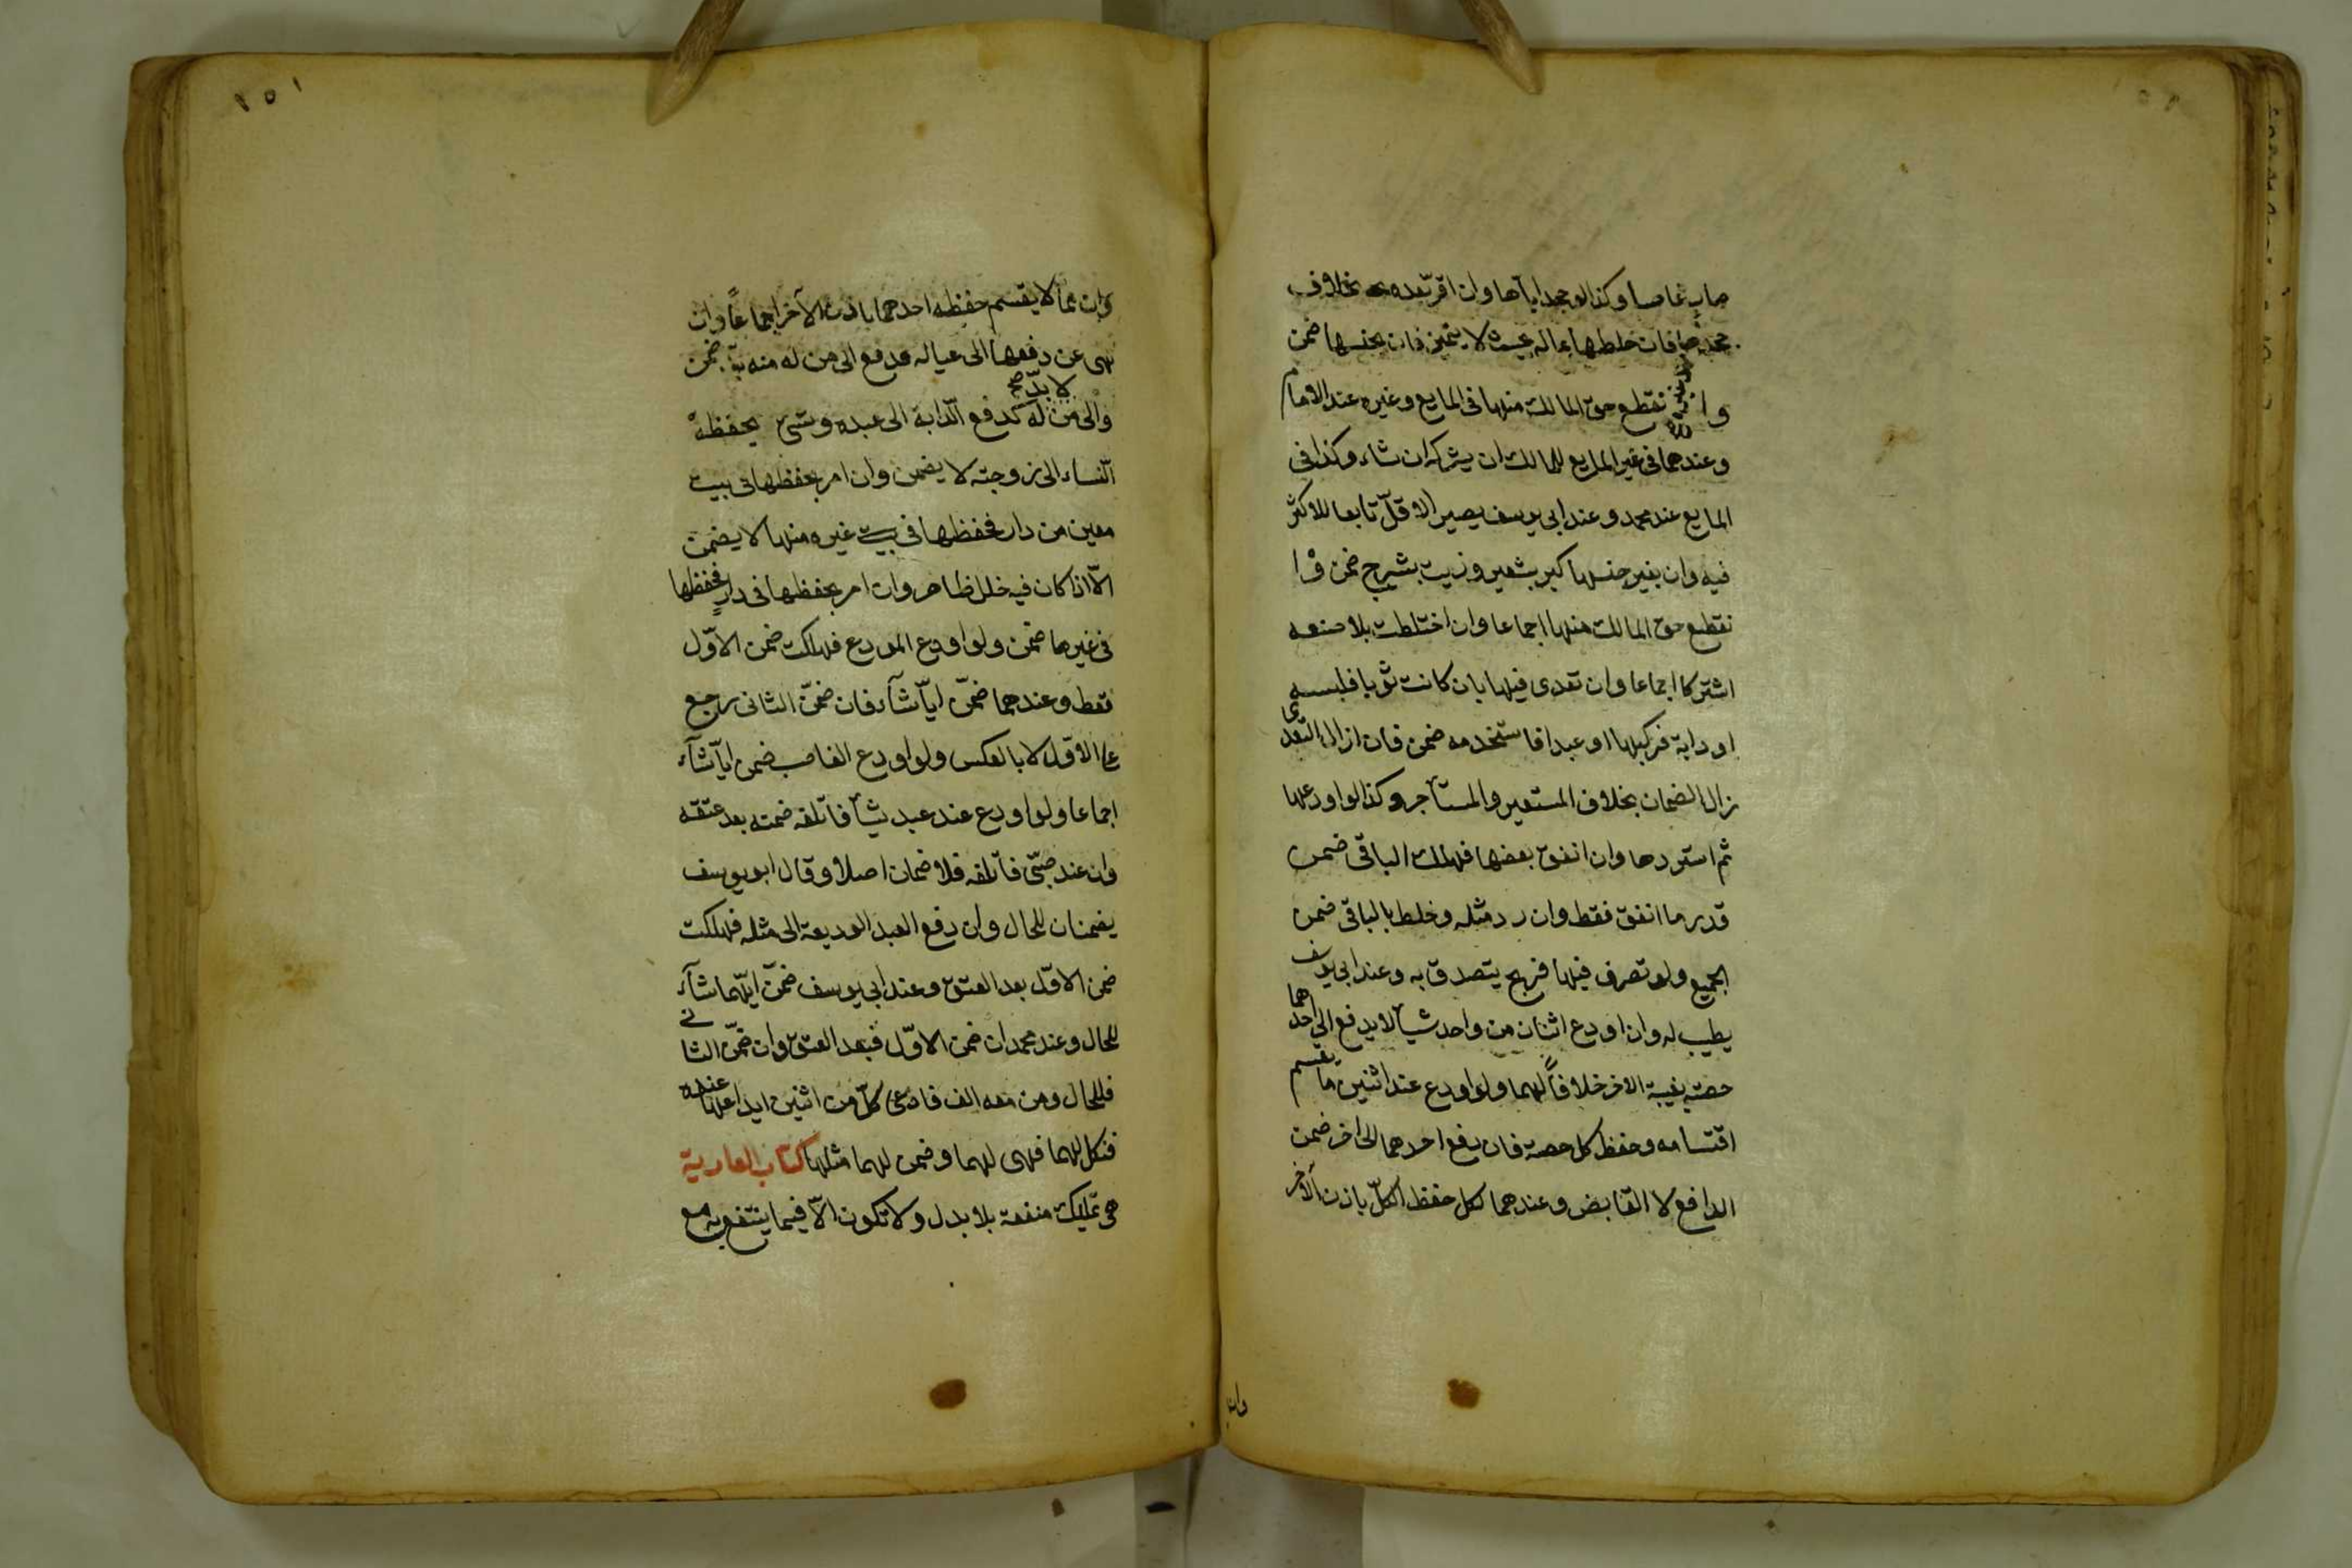 صار غاصبا وكذا لو جحد اياها وان اقر بعده بخلاف
فان خلطها بماله بحيث لا يتميز فان بجنسها ضمن
وا نقطع حق المالك منها فى المايع وغيره عند الامام
وعندهما فى غير المايع للمالك ان يشركه ان شاء وكذا فى
المايع عند محمد وعند ابى يوسف يصير الاقلّ تابعا للاكثر
فيه وان بغير جنسها كبر بشعير وزيت بشيرج ضمن وا
نقطع حق المالك منها اجماعا وان اختلطت بلا صنعه
اشتركا اجماعا وان تعدى فيها بان كانت ثوبا فلبسه
او دابة فركبها او عبدا فاستخدمه ضمن فان ازال التعدى
زال الضمان بخلاف المستعير والمستأجر وكذا لو اودعها
ثم استردها وان انفق بعضها فهلك الباقى ضمن
قدر ما انفق فقط وان رد مثله وخلط بالباقى ضمن
الجميع ولو تصرف فيها فربح يتصدق به وعند ابى يوسف
يطيب له وان اودع اثنان من واحد شيأ لا يدفع الى احدهما
حصته بغيبة الاخر خلافاً لهما ولو اودع عند اثنين ما يقسم
اقتسامه وحفظ كل حصة فان دفع احدهما الى اخر ضمن
الدافع لا القابض وعندهما لكل حفظ الكلّ باذن الآخر
وان
١٥١
وان مما لا يقسم حفظه احدهما باذن الآخر اجماعاً وان
نهى عن دفعها الى عياله فدفع الى من له منه بدّ ضمن
والى من لا بدّ صح له كدفع الدّابة الى عبده وشئ يحفظه
النّساء الى زوجته لا يضمن وان امر بحفظها فى بيت
معين من دار فحفظها فى بيت غيره منها لا يضمن
الاّ اذا كان فيه خلل ظاهر وان امر بحفظها فى دارٍ فحفظها
فى غيرها ضمن ولو اودع المودع فهلكت ضمن الاوّل
فقط وعندهما ضمّن ايّا شآء فان ضمّن الثانى رجع
على الاوّل لا بالعكس ولو اودع الغاصب ضمن ايّا شآء
اجماعا ولو اودع عند عبد شيأ فاتلفه ضمنه بعد عتقه
وان عند صبّى فاتلفه فلا ضمان اصلا وقال ابو يوسف
يضمنان للحال وان دفع العبد الوديعة الى مثله فهلكت
ضمن الاوّل بعد العتق وعند ابى يوسف ضمّن ايّهما شآء
للحال وعند محمد ان ضمن الاوّل فبعد العتق وان ضمّن الثانى
فللحال ومن معه الف فادعى كلّ من اثنين ايداعها عنده
فنكل لهما فهى لهما وضمن لهما مثلها كتاب العارية
هى تمليك منفعة بلا بدل ولا تكون الاّ فيما ينتفع به مع